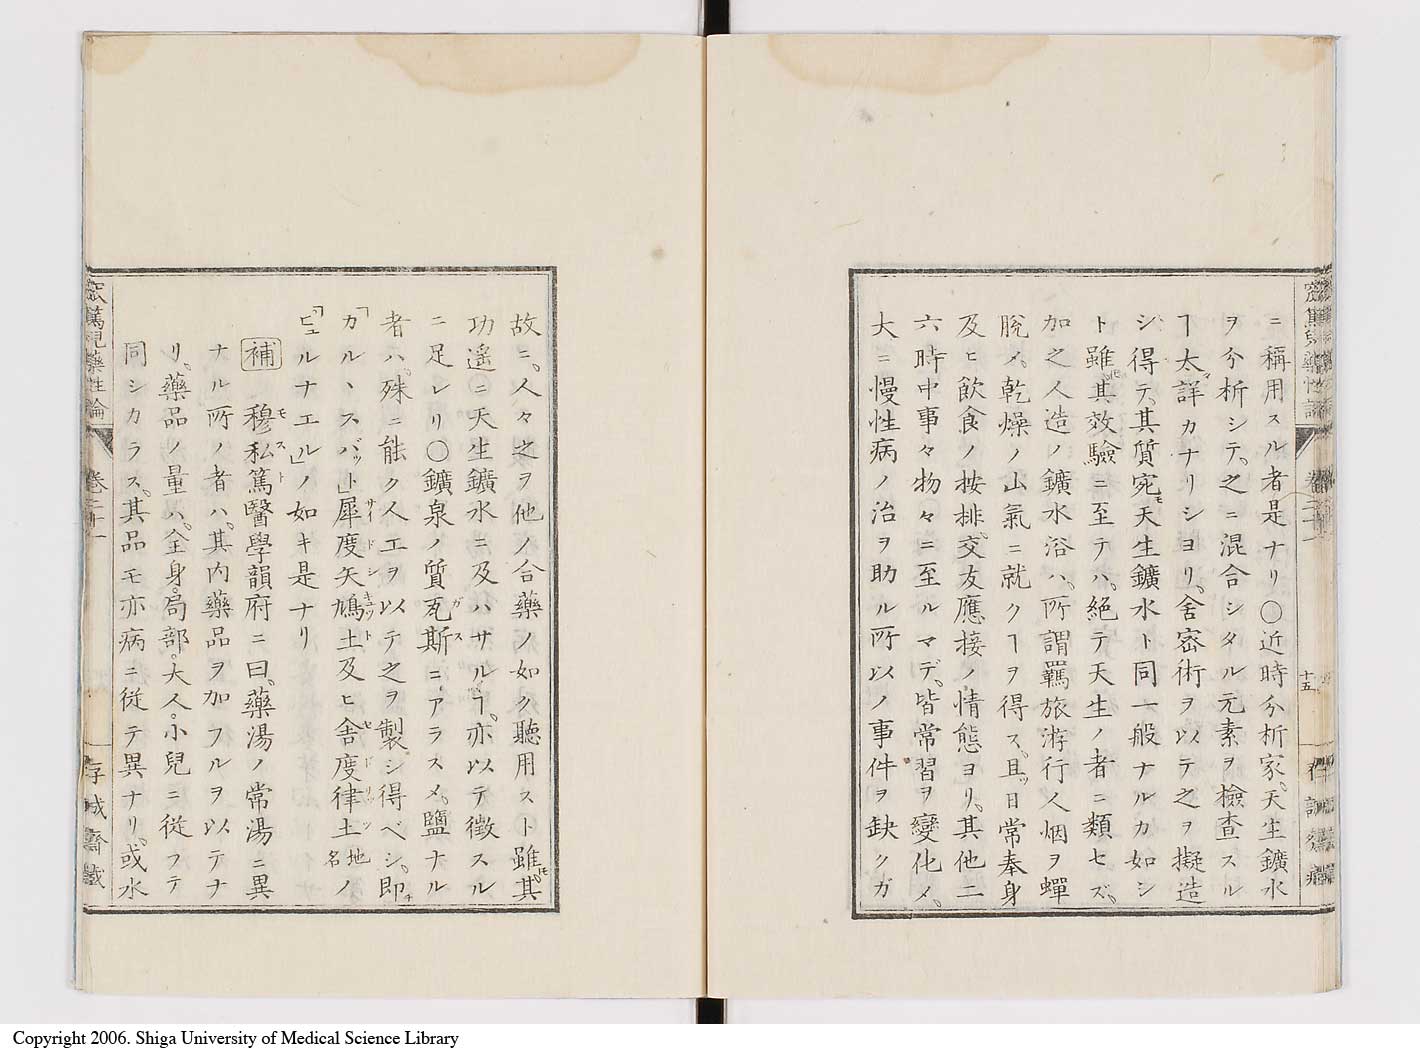 ニ稱用スル者是ナリ〇近時分析家天生鑛水
ヲ分析シテ之ニ混合シタル元素ヲ檢査スル
ヿ太詳カナリシヨリ舍密術ヲ以テ之ヲ擬造
シ得テ其質宛天生鑛水ト同一般ナルカ如シ
ト雖其效驗ニ至テハ絶テ天生ノ者ニ類セズ
加之人造ノ鑛水浴ハ所謂羈旅游行人烟ヲ蟬
脫メ乾燥ノ山氣ニ就クヿヲ得ス且日常奉身
及ヒ飲食ノ按排交友應接ノ情態ヨリ其他二
六時中事々物々ニ至ルマデ皆常習ヲ變化メ
大ニ慢性病ノ治ヲ助ル所以ノ事件ヲ缺クガ
十五
故ニ人々之ヲ他ノ合藥ノ如ク聽用スト雖其
功遥ニ天生鑛水ニ及ハサルヿ亦以テ徴スル
ニ足レリ〇鑛泉ノ質瓦斯ニアラスメ鹽ナル
者ハ殊ニ能ク人工ヲ以テ之ヲ製シ得ベシ即
「カルヽスバット」犀度矢鳩土及ヒ舍度律土地名ノ
「ピュルナエル」ノ如キ是ナリ
補 穆私篤醫學韻府ニ曰藥湯ノ常湯ニ異
ナル所ノ者ハ其内藥品ヲ加フルヲ以テナ
リ藥品ノ量ハ全身局部大人小兒ニ從フテ
同シカラス其品モ亦病ニ從テ異ナリ或水
窊篤兒藥性論 卷二十一 存誠齋藏
Copyright 2006. Shiga University of Medical Science Library